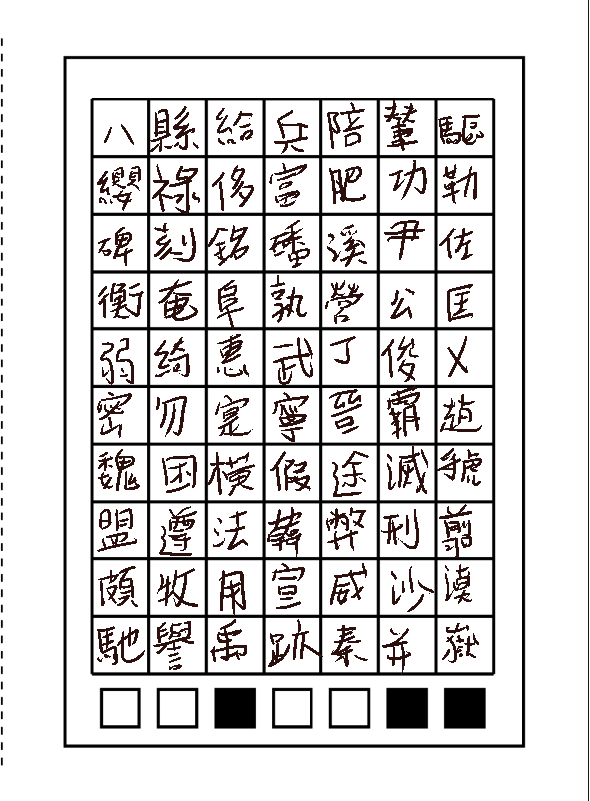 八縣給兵陪輦驅
纓祿侈富肥功勒
碑刻銘磻溪尹佐
衡奄阜孰營公匡
弱綺惠武丁俊乂
密勿寔寧晉霸趙
魏困橫假途滅虢
盟遵法韓弊刑翦
頗牧用宣威沙漠
馳譽禹跡秦并嶽